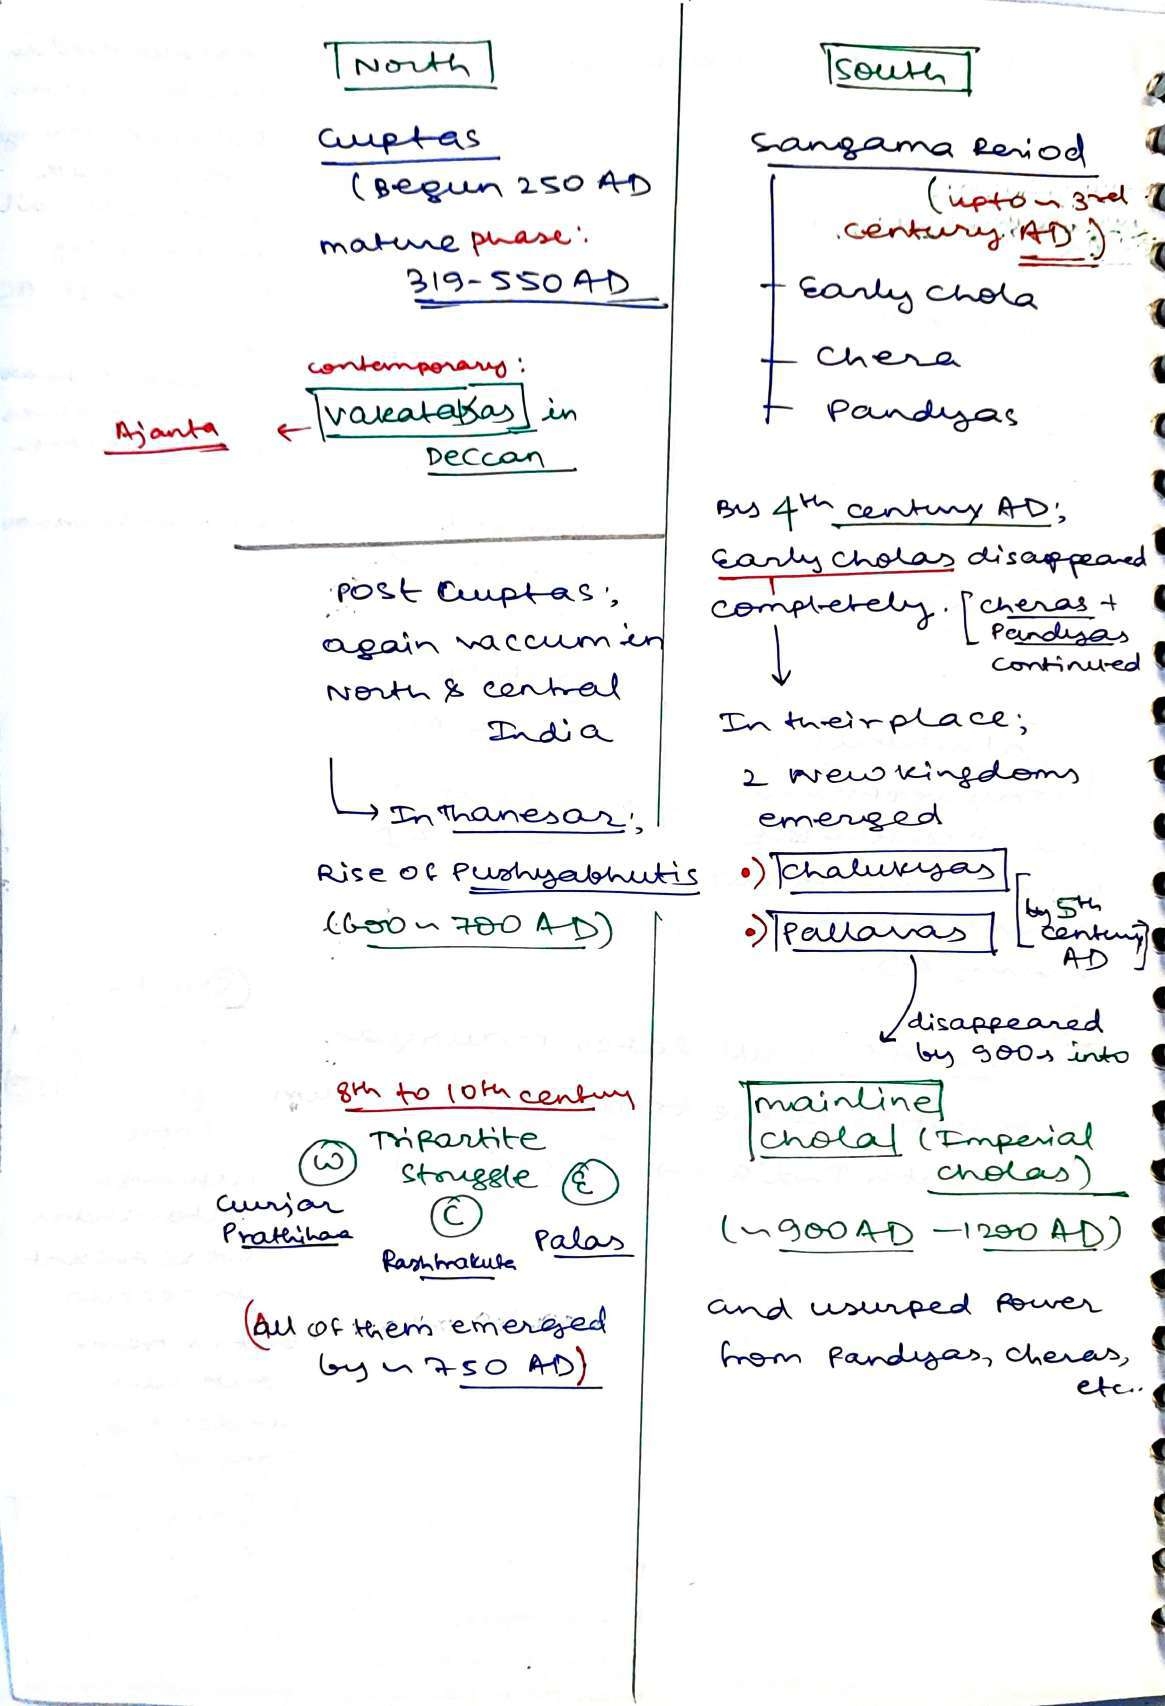 North
Guptas
(Begun 250 AD
mature phase:
319-550 AD
contemporary:
Vakatakas in
Deccan
Ajanta
Post Guptas;
again vaccum in
North & central
India
In Thanesar;
Rise of Pushyabhutis
(600 ~ 700 AD)
8th to 10th century
Tripartite
Struggle
W
Gurjar
Prathihaa
C
Rashtrakuta
E
Palas
(All of them emerged
by ~ 750 AD)
South
Sangama Period
(upto ~ 3rd
century AD)
Early Chola
Chera
Pandyas
By 4th century AD;
Early Cholas disappeared
completely. [Cheras +
Pandyas
continued
In their place;
2 New kingdoms
emerged
•) Chalukyas
•) Pallavas
by 5th
century
AD]
disappeared
by 900s into
mainline
chola (Imperial
cholas)
(~ 900 AD - 1200 AD)
and usurped Power
from Pandyas, Cheras,
etc..